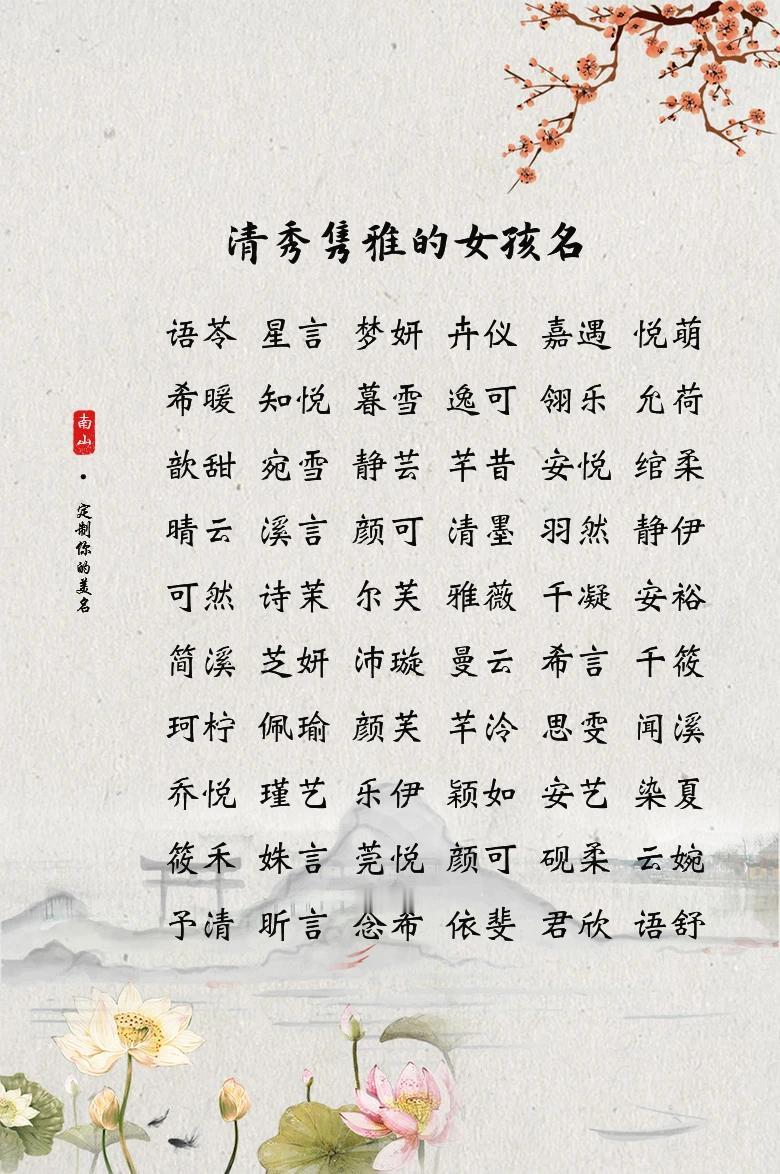 清秀隽雅的女孩名
语苓 星言 梦妍 卉仪 嘉遇 悦萌
希暖 知悦 暮雪 逸可 翎乐 允荷
歆甜 宛雪 静芸 芊昔 安悦 绾柔
晴云 溪言 颜可 清墨 羽然 静伊
可然 诗茉 尔芙 雅薇 千凝 安裕
简溪 芝妍 沛璇 曼云 希言 千筱
珂柠 佩瑜 颜芙 芊泠 思雯 闻溪
乔悦 瑾艺 乐伊 颖如 安艺 染夏
筱禾 姝言 莞悦 颜可 砚柔 云婉
予清 昕言 念希 依斐 君欣 语舒
南山
·定制你的美名